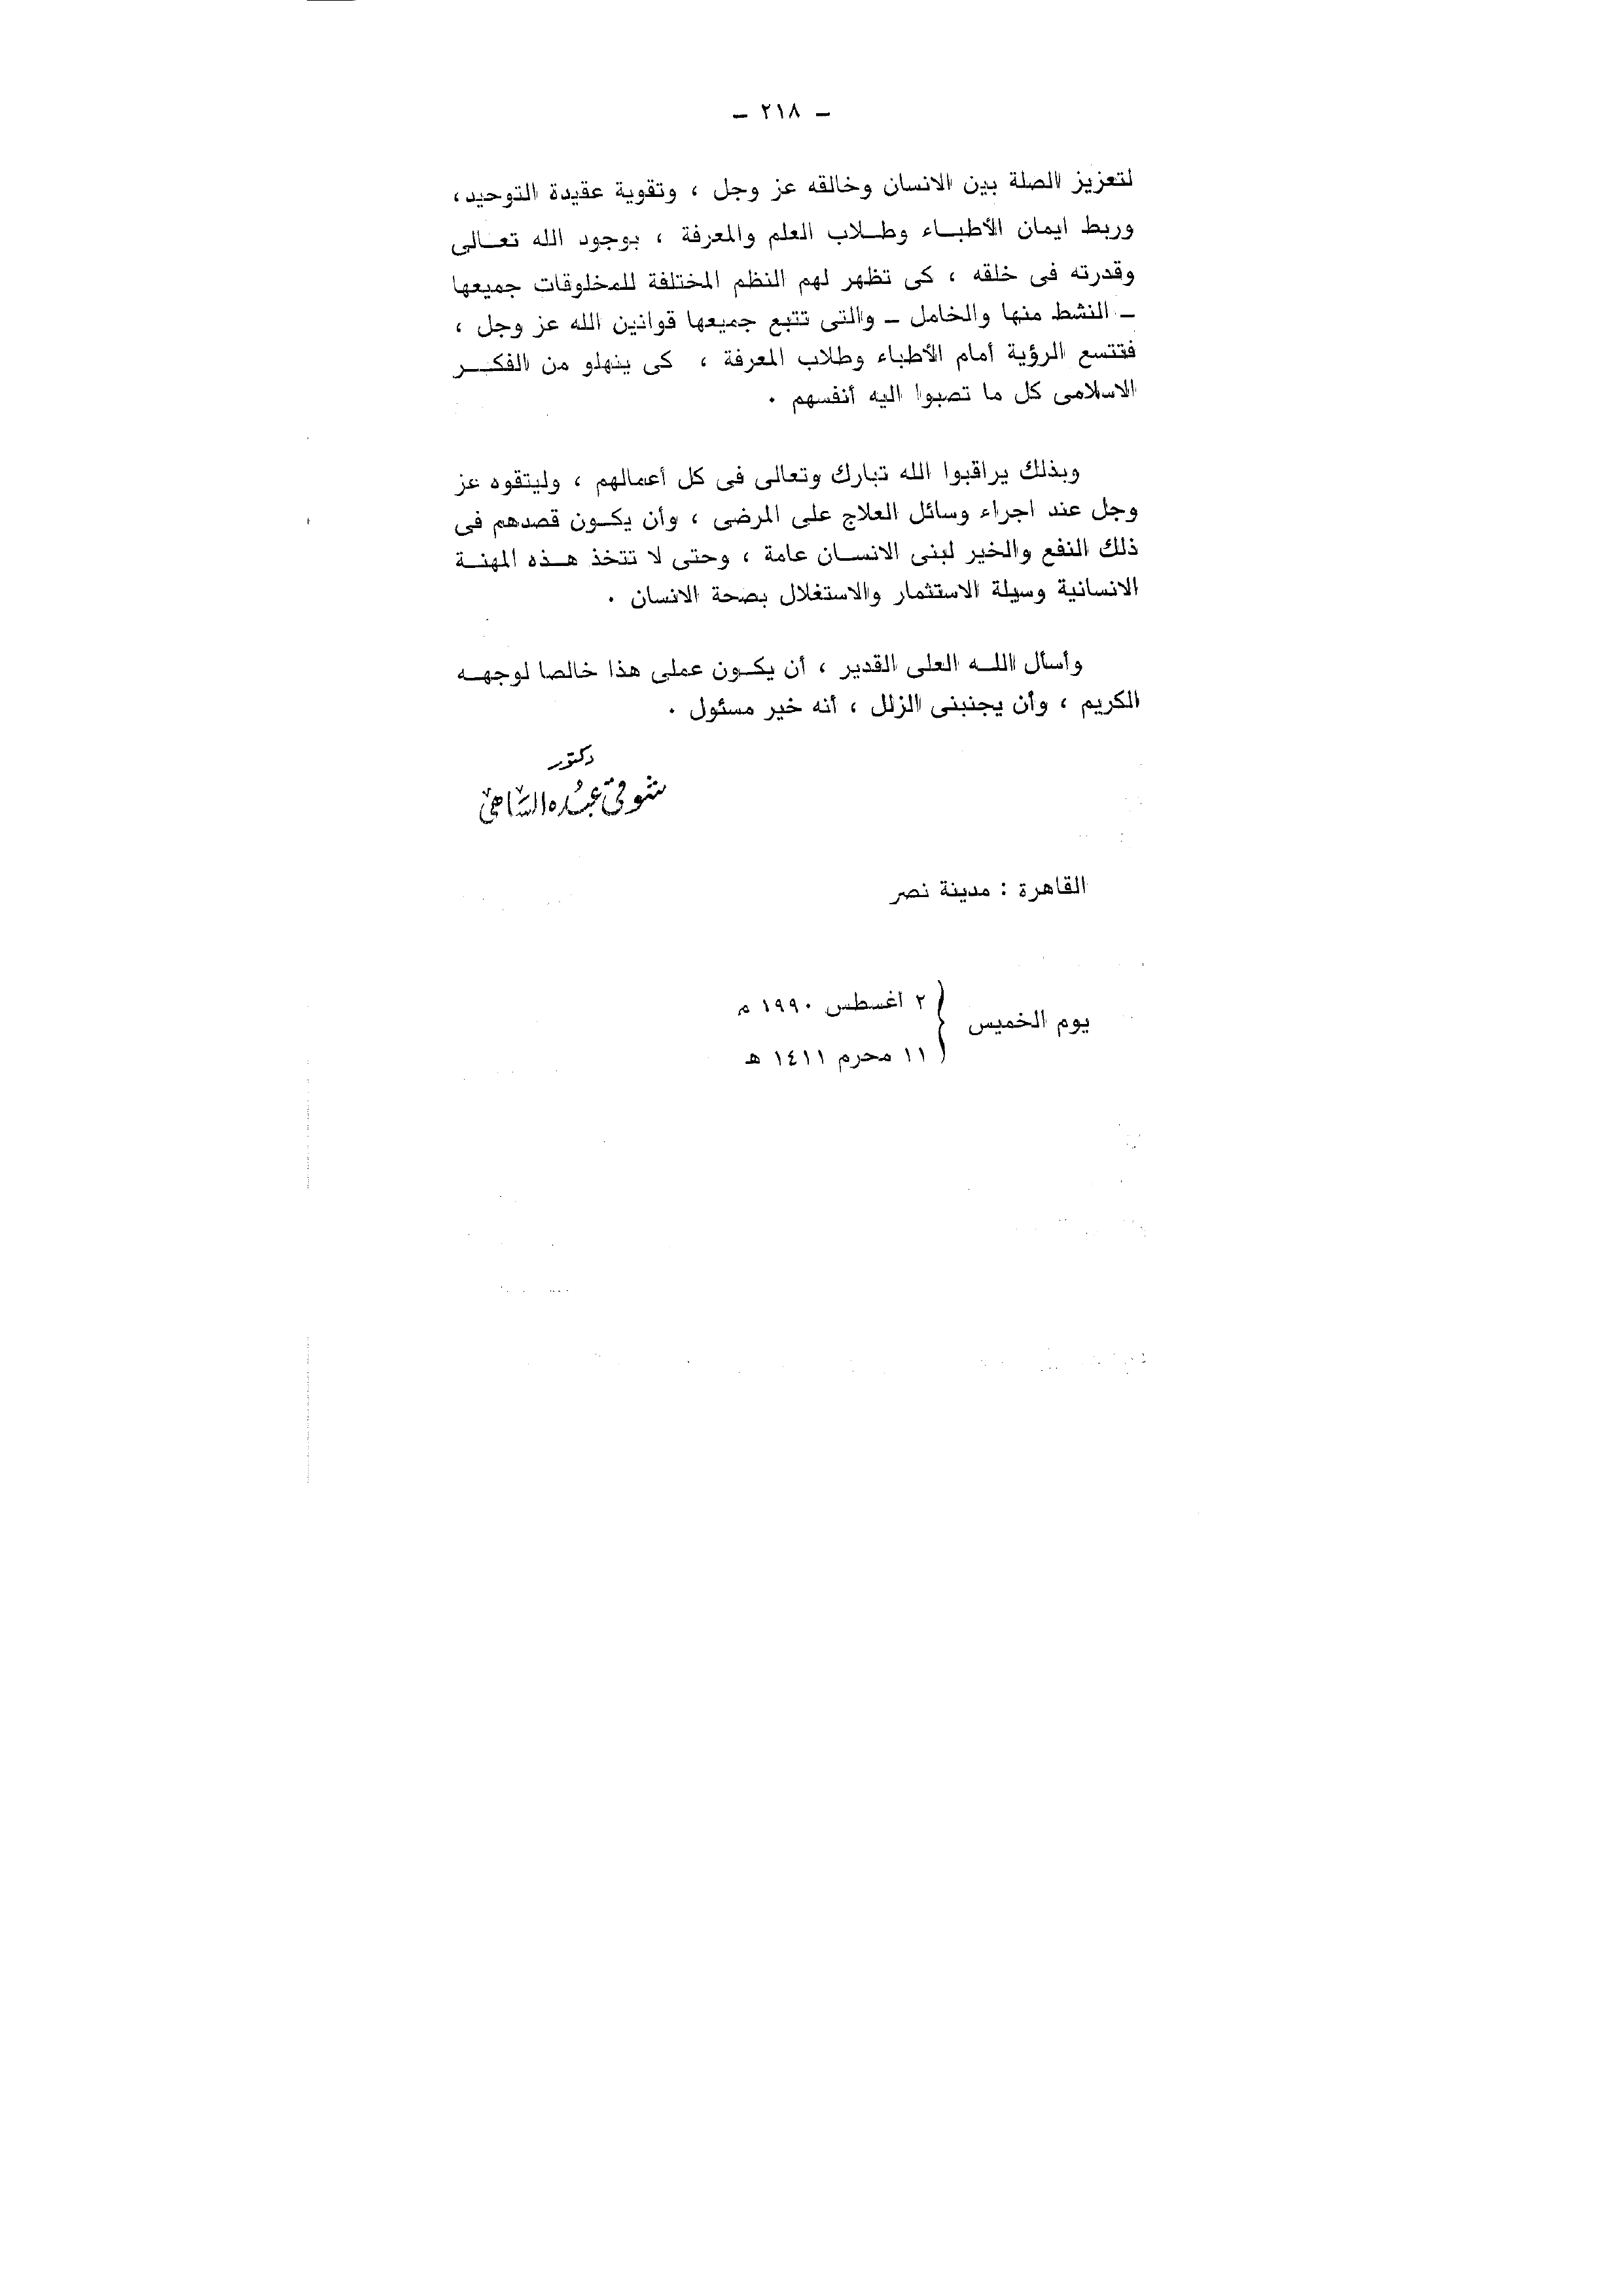 ـ ٢١٨ ـ
لتعزيز الصلة بين الانسان وخالقه عز وجل ، وتقوية عقيدة التوحيد،
وربط ايمان الأطبـــاء وطــلاب العلم والمعرفة ، بوجود الله تعــالى
وقدرته فى خلقه ، كى تظهر لهم النظم المختلفة للمخلوقات جميعها
ـ النشط منها والخامل ـ والتى تتبع جميعها قوانين الله عز وجل ،
فتتسع الرؤية أمام الأطباء وطلاب المعرفة ، كى ينهلو من الفكــــر
الاسلامى كل ما تصبوا اليه أنفسهم ٠
وبذلك يراقبوا الله تبارك وتعالى فى كل أعمالهم ، وليتقوه عز
وجل عند اجراء وسائل العلاج على المرضى ، وأن يكــون قصدهم فى
ذلك النفع والخير لبنى الانســان عامة ، وحتى لا تتخذ هــذه المهنــة
الانسانية وسيلة الاستثمار والاستغلال بصحة الانسان ٠
وأسأل اللــه العلى القدير ، أن يكــون عملى هذا خالصا لوجهــه
الكريم ، وأن يجنبنى الزلل ، أنه خير مسئول ٠
دكتور
شوقى عبده الساهى
القاهرة : مدينة نصر
يوم الخميس
٢ أغسطس ١٩٩٠ م
١١ محرم ١٤١١ هـ